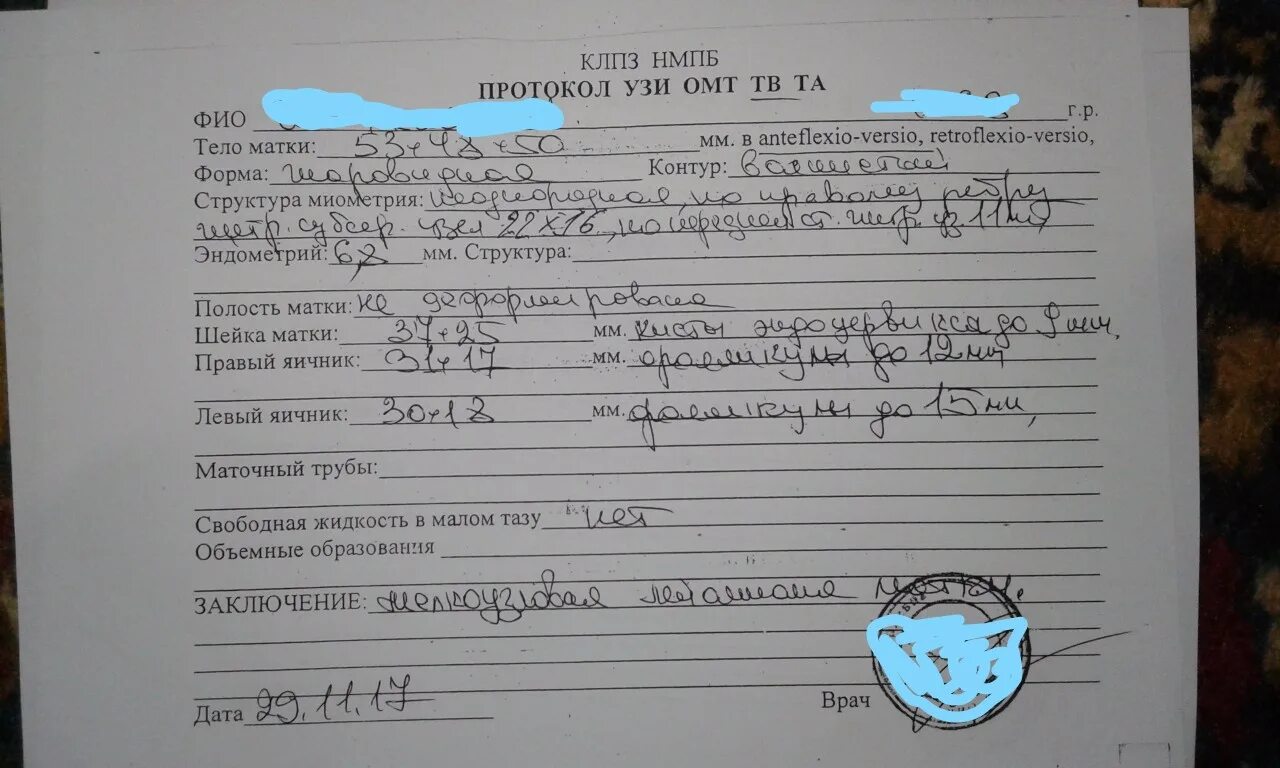 КЛПЗ НМПБ
ПРОТОКОЛ УЗИ ОМТ ТВ ТА
ФИО г.р.
Тело матки: 53+48+50 мм. в anteflexio-versio, retroflexio-versio,
Форма: шаровидная Контур: волнистый
Структура миометрия: неоднородная, по правому ребру
интр. субсер. узел 22х16, по передней ст. интр. уз. 11мм,
Эндометрий: 6,8 мм. Структура:
Полость матки: не деформирована
Шейка матки: 37+25 мм. кисты эндоцервикса до 9 мм.
Правый яичник: 31+17 мм. фолликулы до 12мм,
Левый яичник: 30+18 мм. фолликулы до 15мм,
Маточный трубы:
Свободная жидкость в малом тазу нет
Объемные образования
ЗАКЛЮЧЕНИЕ: мелкоузловая матки.
Дата 29.11.17 Врач